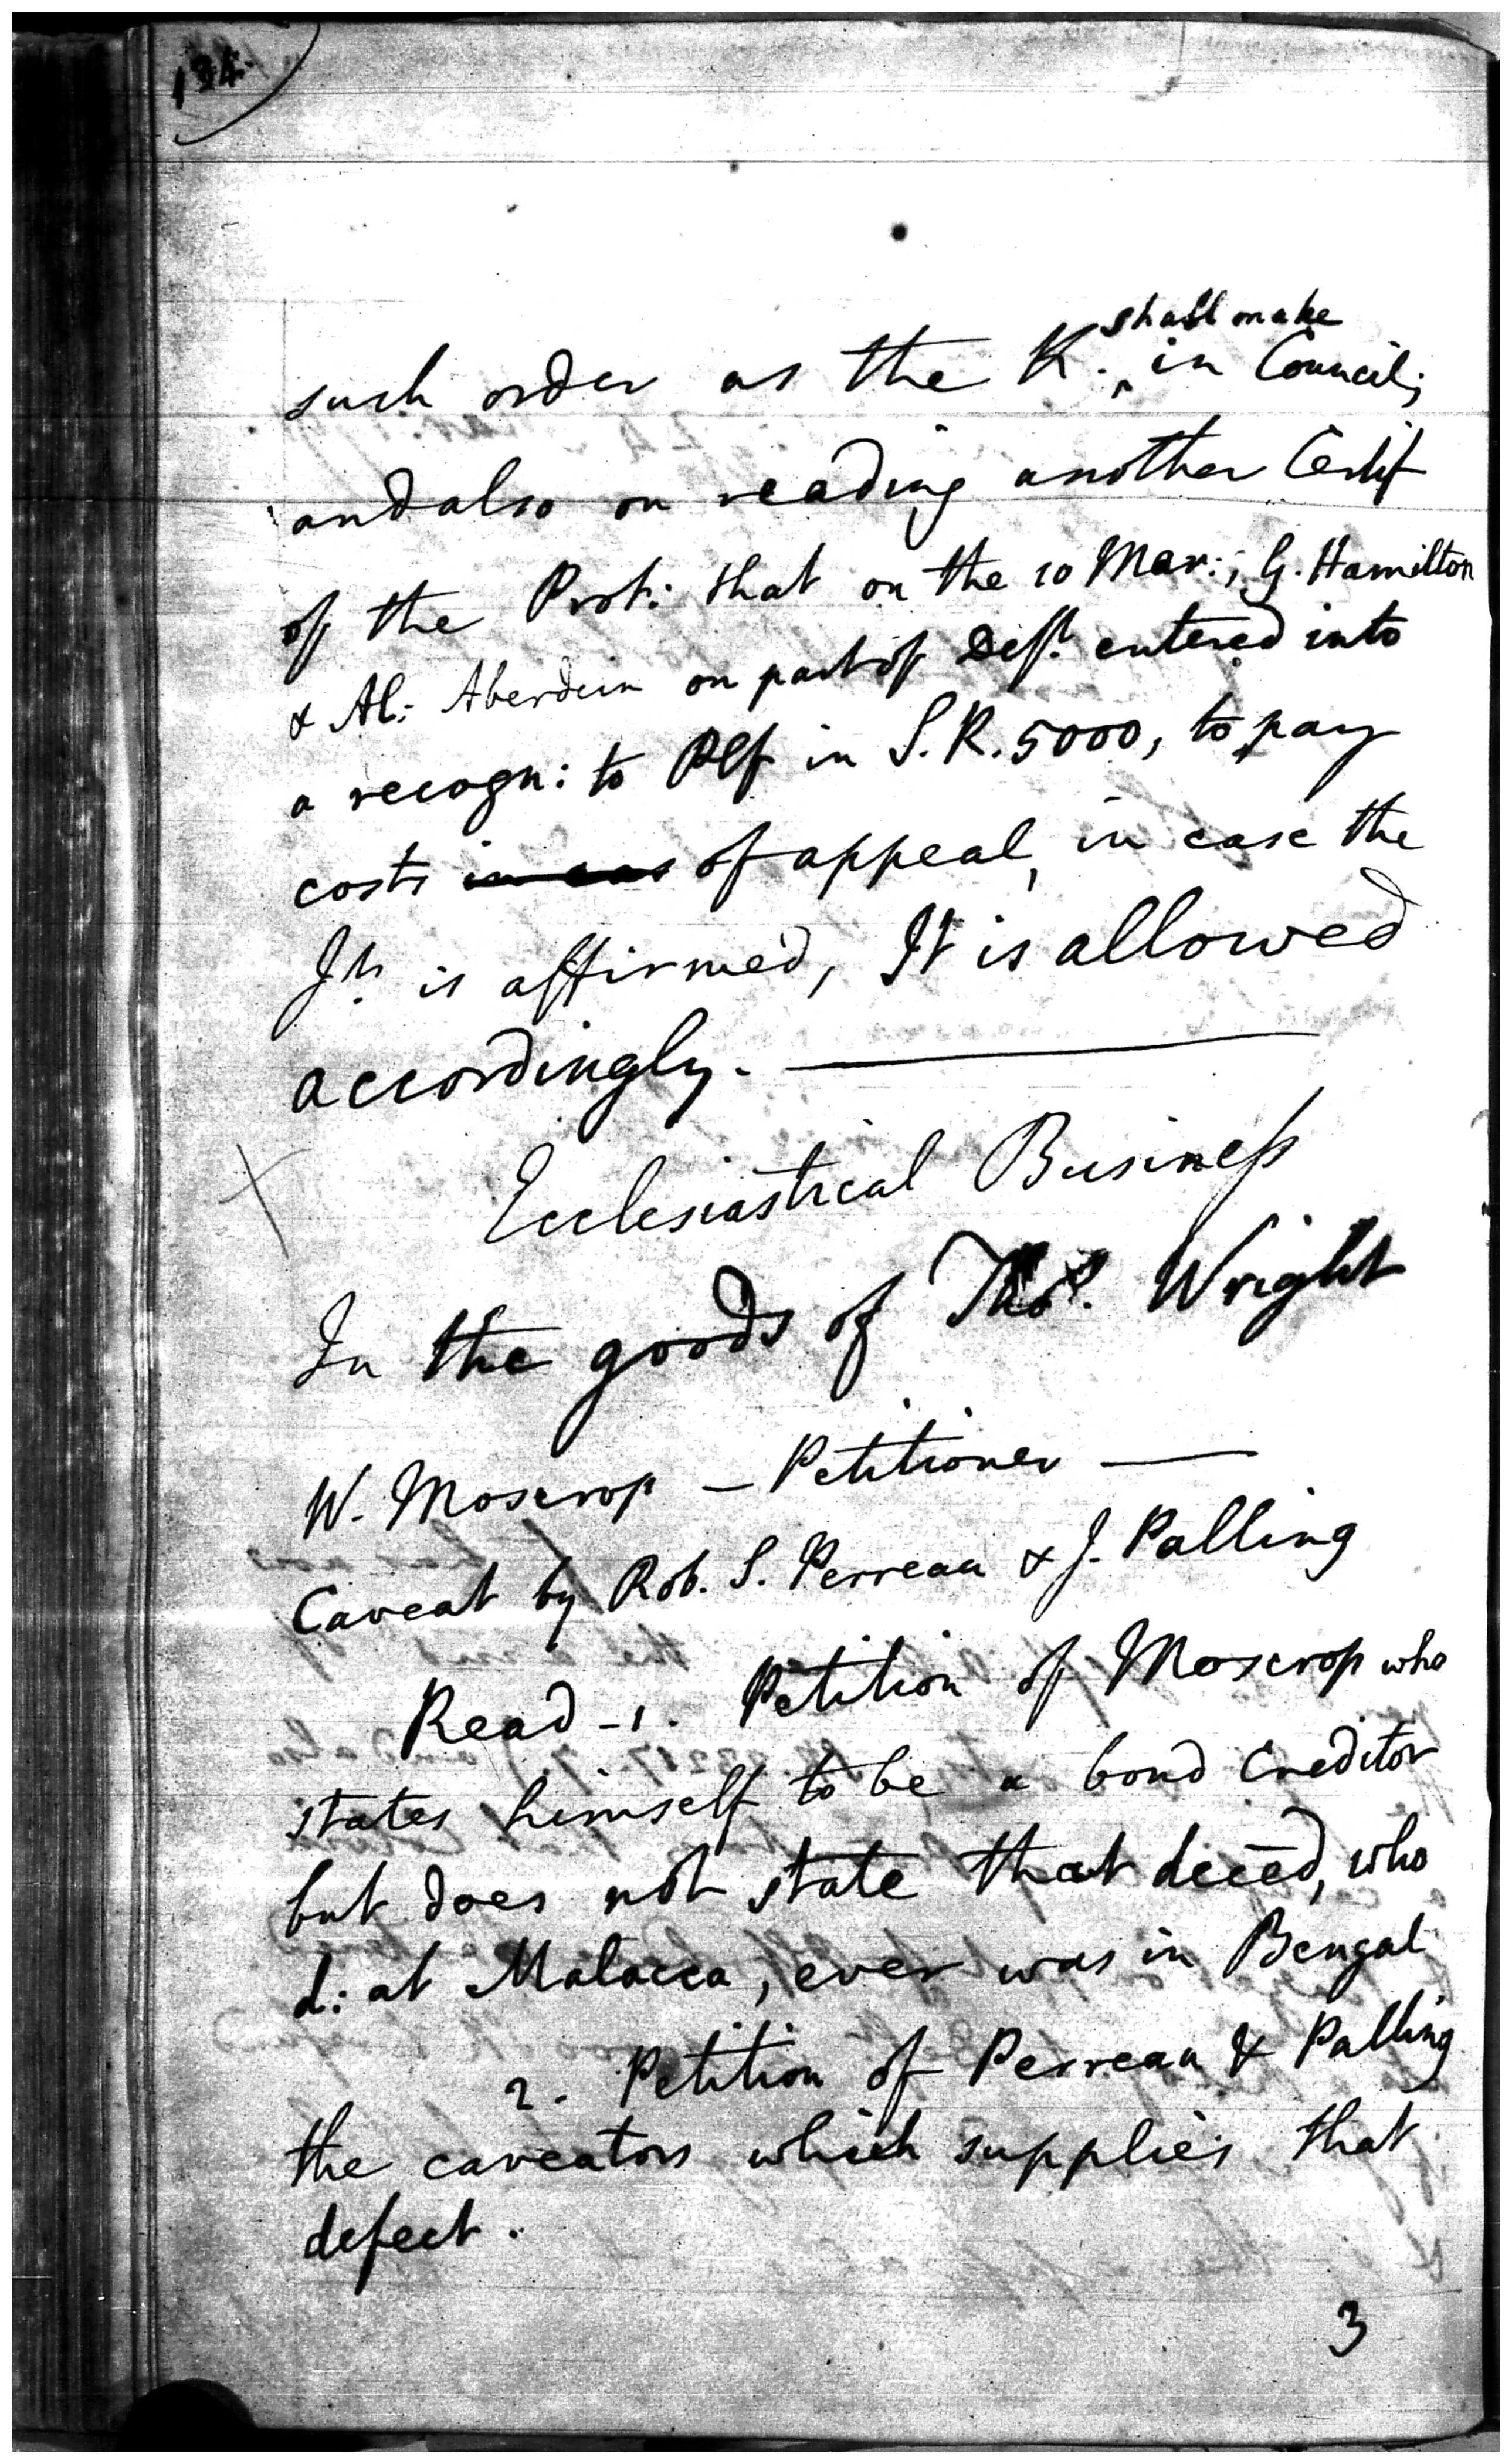 134.
shall make
such order as the K. ^ in Council;
and also on reading another Certif
of the Prot: that on the 10 Mar:, G. Hamilton
& Al: Aberdein on part of Deft. entered into
a recogn: to Plf in S.R. 5000, to pay
costs in cas of appeal, in case the
Jt. is affirmed, It is allowed
accordingly. —
Ecclesiastical Business
In the goods of Thos. Wright
W. Moscrop — Petitioner —
Caveat by Rob. S. Perreau & J. Palling
Read - 1. Petition of Moscrop who
states himself to be a bond Creditor
but does not state that decēd, who
d: at Malacca, ever was in Bengal
2. Petition of Perreau & Palling
the caveators which supplies that
defect.
3